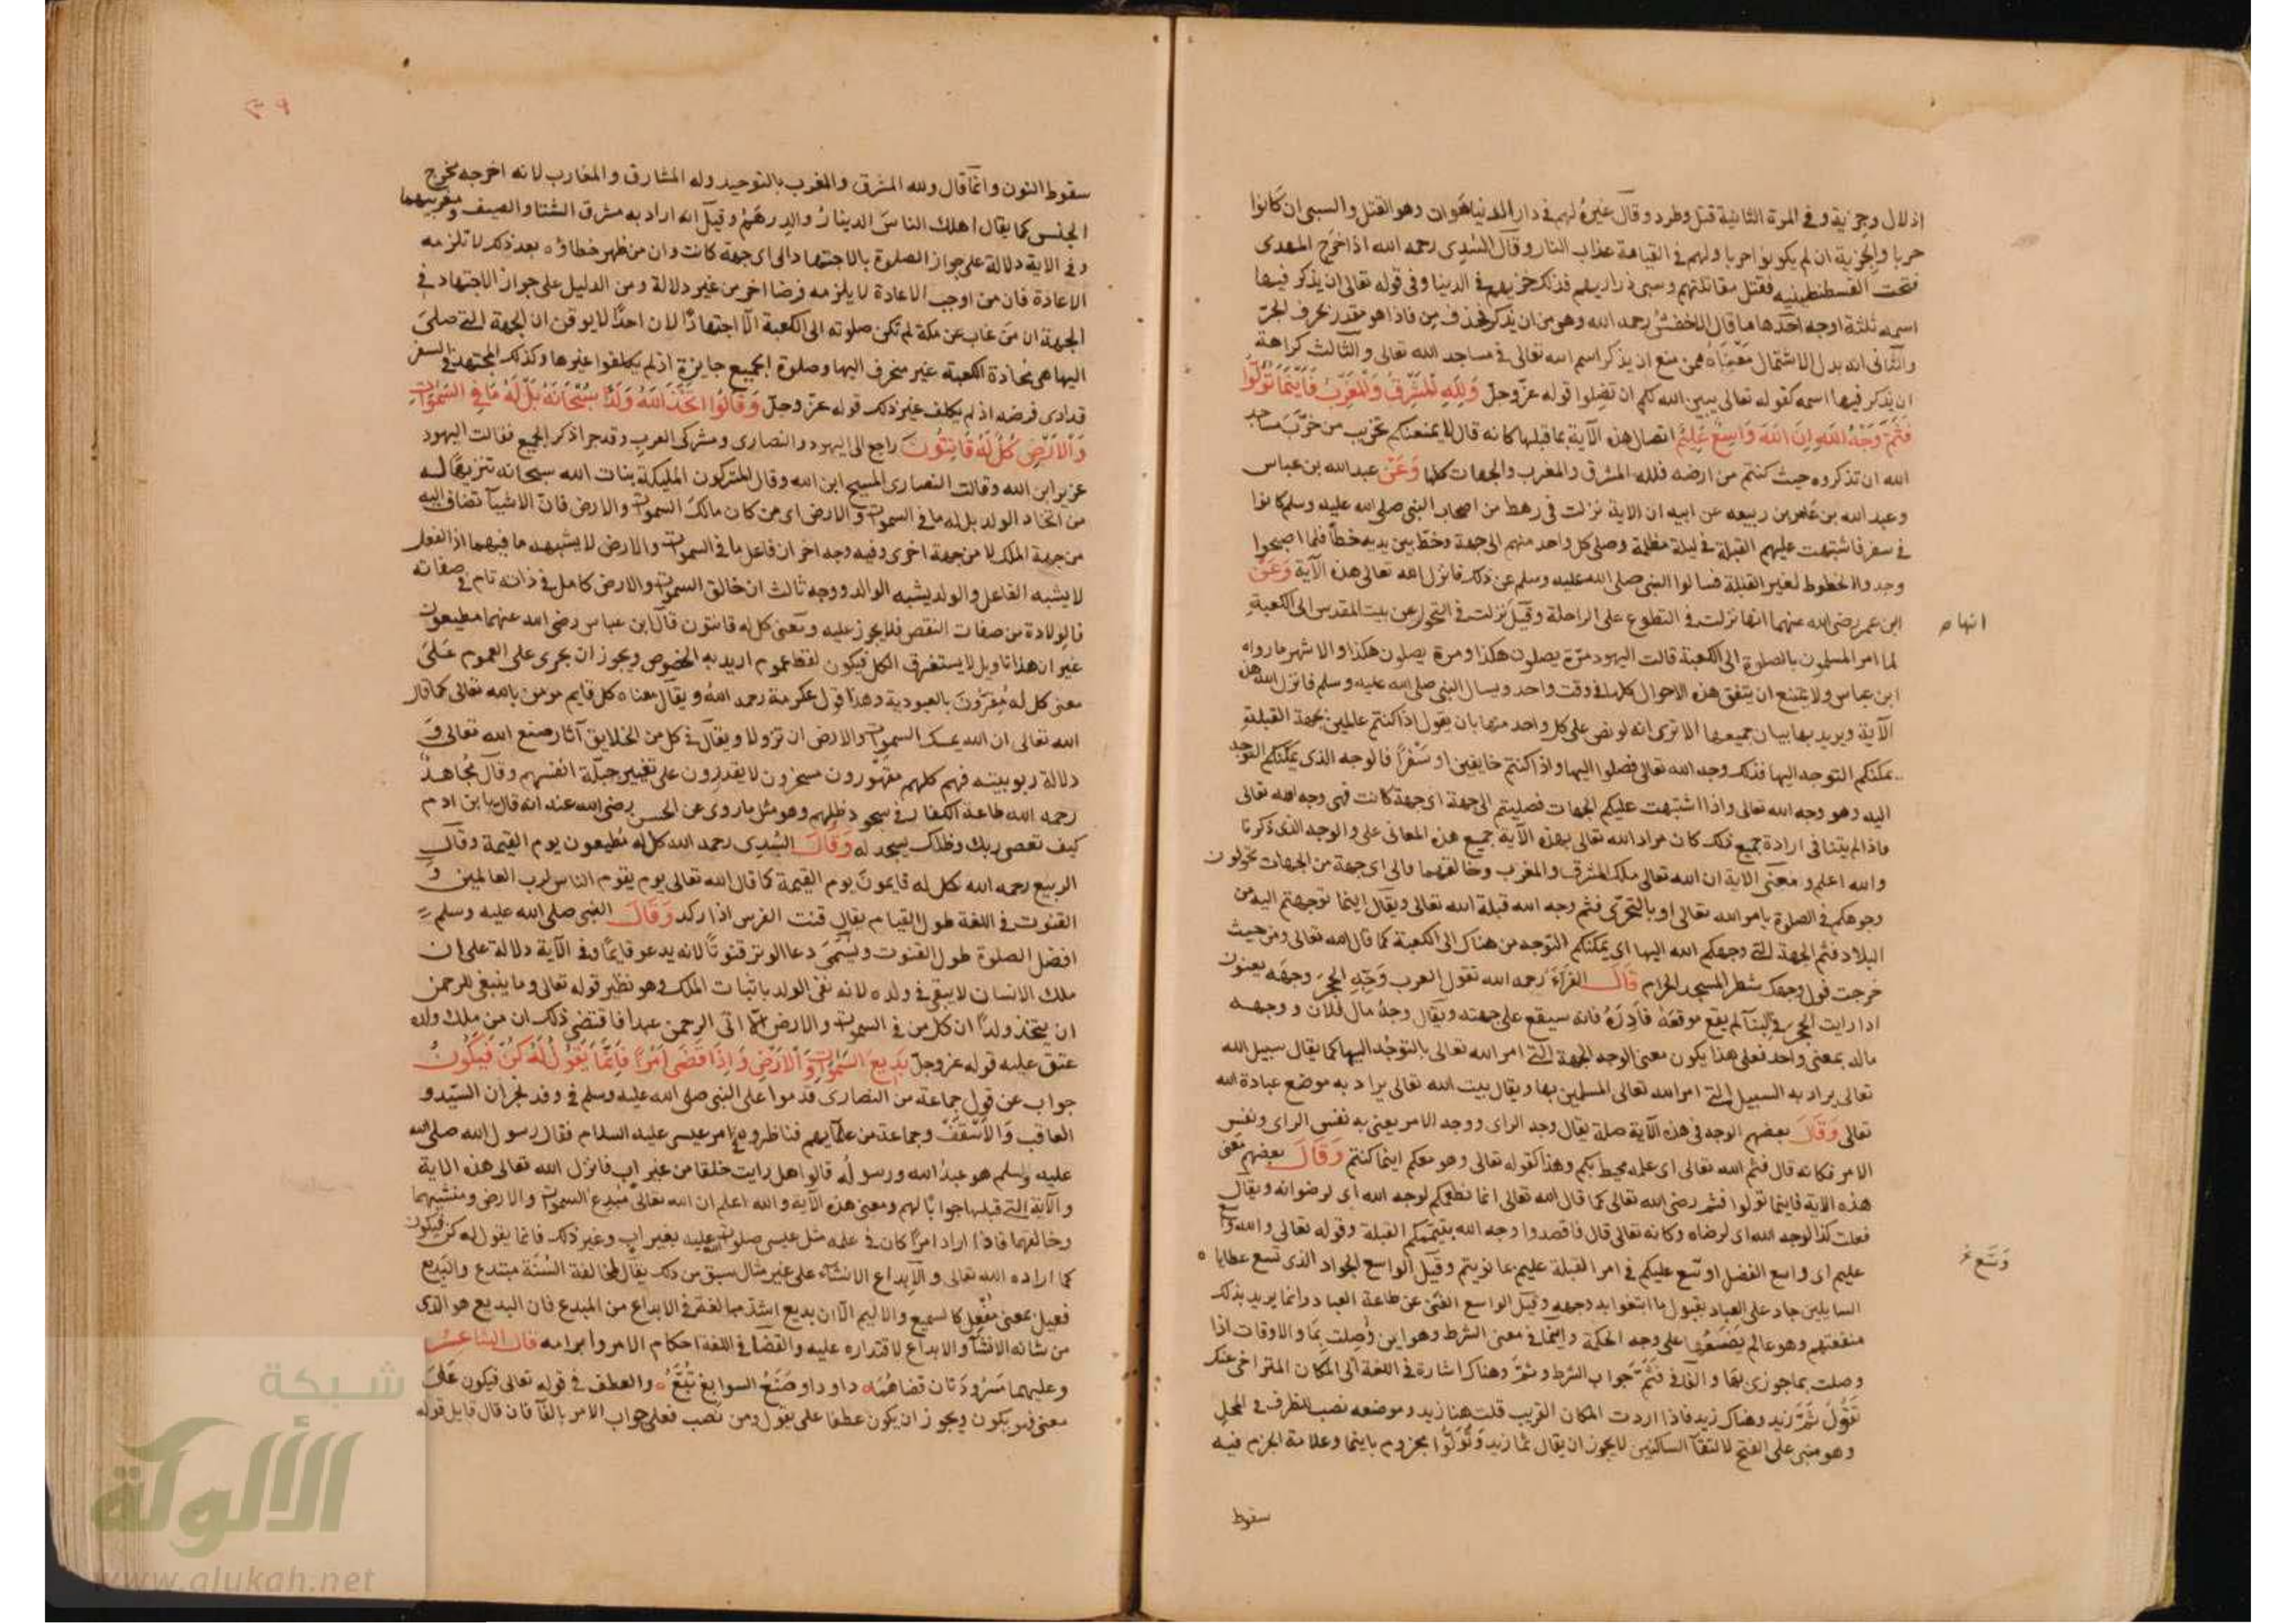 اذلال وجزية وفي المرة الثانية قتل وطرد وقال غيره لهم في دار الدنيا هوان وهو القتل والسبي ان كانوا
حربا والجزية ان لم يكونوا حربا ولهم في القيامة عذاب النار وقال السدي رحمه الله اذا خرج المهدى
فتحت القسطنطينيه فقتل مقاتلتهم وسبى ذراريهم فذلك خزيهم في الدنيا وفي قوله تعالى ان يذكر فيها
اسمه ثلثة اوجه احدها ما قال الاخفش رحمه الله وهو من ان يذكر فحذف من فاذا هو مقدر بحرف الجر
والثاني انه بدل الاشتمال معناه ممن منع ان يذكر اسم الله تعالى في مساجد الله تعالى والثالث كراهة
ان يذكر فيها اسمه كقوله تعالى يبين الله لكم ان تضلوا قوله عز وجل وَلِلَّهِ الْمَشْرِقُ وَالْمَغْرِبُ فَأَيْنَمَا تُوَلُّوا
فَثَمَّ وَجْهُ اللَّهِ إِنَّ اللَّهَ وَاسِعٌ عَلِيمٌ اتصال هذه الآية بما قبلها كانه قال لا يمنعنكم تخريب من خرب مساجد
الله ان تذكروه حيث كنتم من ارضه فلله المشرق والمغرب والجهات كلها وَعَنْ عبد الله بن عباس
وعبد الله بن عامر بن ربيعه عن ابيه ان الاية نزلت في رهط من اصحاب النبي صلى الله عليه وسلم كانوا
في سفر فاشتبهت عليهم القبلة في ليلة مظلمة وصلى كل واحد منهم الى جهة وخط بين يديه خطا فلما اصبحوا
وجدوا الخطوط لغير القبلة فسالوا النبي صلى الله عليه وسلم عن ذلك فانزل الله تعالى هذه الآية وَعَنْ
ابن عمر رضي الله عنهما انها نزلت في التطوع على الراحلة وقيل نزلت في التحول عن بيت المقدس الى الكعبة
انهام
لما امر المسلمون بالصلوة الى الكعبة قالت اليهود مرة يصلون هكذا ومرة يصلون هكذا والاشهر ما رواه
ابن عباس ولا يمتنع ان يتفق هذه الاحوال كلها في وقت واحد ويسال النبي صلى الله عليه وسلم فانزل الله هذه
الآية ويريد بها بيان جميعها الا ترى انه لو نص على كل واحد منها بان يقول اذا كنتم عالمين بجهة القبلة
يمكنكم التوجه اليها فذلك وجه الله تعالى فصلوا اليها واذا كنتم خايفين او سفرا فالوجه الذى يمكنكم التوجه
اليه وهو وجه الله تعالى واذا اشتبهت عليكم الجهات فصليتم الى جهة اى جهة كانت فهى وجه الله تعالى
فاذا لم يتنافى ارادة جميع ذلك كان مراد الله تعالى بهذه الآية جميع هذه المعاني على والوجه الذى ذكرنا
والله اعلم ومعنى الاية ان الله تعالى ملك المشرق والمغرب وخالقهما والى اى جهة من الجهات تحولون
وجوهكم في الصلوة بامر الله تعالى او بالتحري فثم وجه الله قبلة الله تعالى ويقال اينما توجهتم اليه من
البلاد فثم الجهة التي وجهكم الله اليها اى يمكنكم التوجه من هناك الى الكعبة كما قال الله تعالى ومن حيث
خرجت فول وجهك شطر المسجد الحرام قَالَ الفراء رحمه الله تقول العرب وَجِّهِ الحجر وجهه يعنون
اذا رايت الحجر في البنآ لم يقع موقعه فادره فانه سيقع على جهته ويقال وجه مال فلان ووجهه
ماله بمعنى واحد فعلى هذا يكون معنى الوجه الجهة التي امر الله تعالى بالتوجه اليها كما يقال سبيل الله
تعالى يراد به السبيل التي امر الله تعالى المسلمين بها ويقال بيت الله تعالى يراد به موضع عبادة الله
تعالى وَقَالَ بعضهم الوجه في هذه الآية صلة يقال وجه الراى ووجه الامر يعني به نفس الراى ونفس
الامر فكانه قال فثم الله تعالى اى علمه محيط بكم وهذا كقوله تعالى وهو معكم اينما كنتم وَقَالَ بعضهم معنى
هذه الاية فاينما تولوا فثم رضي الله تعالى كما قال الله تعالى انما نطعمكم لوجه الله اى لرضوانه ويقال
فعلت كذا لوجه الله اى لرضاه وكانه تعالى قال فاقصدوا وجه الله بتيممكم القبلة وقوله تعالى والله واسع
عليم اى واسع الفضل اوسع عليكم في امر القبلة عليم بما نويتم وقيل الواسع الجواد الذى تسع عطايا ه
وَسَّع
السايلين جاد على العباد بقبول ما ابتغوا به وجهه وقيل الواسع الغني عن طاعة العباد وانما يريد بذلك
منفعتهم وهو عالم يضعها على وجه الحكمة واينما في معنى الشرط وهو اين وصلت بما والاوقات اذا
وصلت بما جوزى بها والفآ في فثم جواب الشرط وثم وهناك اشارة في اللغة الى المكان المتراخى عنك
تقول ثم زيد وهناك زيد فاذا اردت المكان القريب قلت هنا زيد وموضعه نصب للظرف في المحل
وهو مبني على الفتح لالتقآ الساكنين لا يجوز ان يقال ثما زيد وتولوا مجزوم باينما وعلامة الجزم فيه
سقوط
٣٩
سقوط النون وانما قال ولله المشرق والمغرب بالتوحيد وله المشارق والمغارب لانه اخرجه مخرج
الجنس كما يقال اهلك الناس الدينار والدرهم وقيل انه اراد به مشرق الشتا والصيف ومغربيهما
وفي الاية دلالة على جواز الصلوة بالاجتهاد الى اى جهة كانت وان من ظهر خطاؤه بعد ذلك لا تلزمه
الاعادة فان من اوجب الاعادة لا يلزمه فرضا اخر من غير دلالة ومن الدليل على جواز الاجتهاد في
الجهة ان من غاب عن مكة لم تكن صلوته الى الكعبة الا اجتهادًا لان احدًا لا يوقن ان الجهة التي صلى
اليها هي محاذة الكعبة غير منحرف اليها وصلوة الجميع جايزة اذ لم يكلفوا غيرها وكذلك المجتهد في السفر
قد ادى فرضه اذ لم يكلف غير ذلك قوله عز وجل وَقَالُوا اتَّخَذَ اللَّهُ وَلَدًا سُبْحَانَهُ بَلْ لَهُ مَا فِي السَّمَوَاتِ
وَالْأَرْضِ كُلٌّ لَهُ قَانِتُونَ راجع الى اليهود والنصارى ومشركى العرب وقد جرا ذكر الجميع فقالت اليهود
عزير ابن الله وقالت النصارى المسيح ابن الله وقال المشركون المليكة بنات الله سبحانه تنزيها له
من اتخاذ الولد بل له ما في السموات والارض اى من كان مالك السموات والارض فان الاشيآ تضاف اليه
من جهة الملك لا من جهة اخرى وفيه وجه اخر ان فاعل ما في السموات والارض لا يشبهه ما فيهما اذ الفعل
لا يشبه الفاعل والولد يشبه الوالد ووجه ثالث ان خالق السموات والارض كامل في ذاته تام في صفاته
فالولادة من صفات النقص فلا يجوز عليه ومعنى كل له قانتون قال ابن عباس رضي الله عنهما مطيعون
غير ان هذا تاويل لا يستغرق الكل فيكون لفظ عموم اريد به الخصوص ويجوز ان يجرى على العموم على
معنى كل له مُقِرّون بالعبودية وهذا قول عكرمة رحمه الله ويقال معناه كل قايم مومن بالله تعالى كما قال
الله تعالى ان الله يمسك السموات والارض ان تزولا ويقال في كل من الخلايق آثار صنع الله تعالى و
دلالة ربوبيته فهم كلهم مقهورون مسخرون لا يقدرون على تغيير جبلة انفسهم وقال مجاهد
رحمه الله طاعة الكفار في سجود ظلهم وهو مثل ما روى عن الحسن رضي الله عنه انه قال يا بن ادم
كيف تعصى ربك وظلك يسجد له وَقَالَ السدى رحمه الله كل له مطيعون يوم القيمة وقال
الربيع رحمه الله كل له قايمون يوم القيمة كما قال الله تعالى يوم يقوم الناس لرب العالمين و
القنوت في اللغة طول القيام يقال قنت الفرس اذا ركد وَقَالَ النبي صلى الله عليه وسلم
افضل الصلوة طول القنوت ويسمى دعا الوتر قنوتًا لانه يدعو قايمًا وفي الآية دلالة على ان
ملك الانسان لا يبقى في ولده لانه نفى الولد باثبات الملك وهو نظير قوله تعالى وما ينبغى للرحمن
ان يتخذ ولدًا ان كل من في السموات والارض الا اتى الرحمن عبدا فاقتضى ذلك ان من ملك ولده
عتق عليه قوله عز وجل بَدِيعُ السَّمَوَاتِ وَالْأَرْضِ وَإِذَا قَضَى أَمْرًا فَإِنَّمَا يَقُولُ لَهُ كُنْ فَيَكُونُ
جواب عن قول جماعة من النصارى قدموا على النبي صلى الله عليه وسلم في وفد نجران السيد و
العاقب والاسقف وجماعة من علمآيهم فناظروه في امر عيسى عليه السلام فقال رسول الله صلى الله
عليه وسلم هو عبد الله ورسوله قالوا هل رايت خلقا من غير اب فانزل الله تعالى هذه الاية
والآية التي قبلها جوابًا لهم ومعنى هذه الآية والله اعلم ان الله تعالى مبدع السموات والارض ومنشيهما
وخالقهما فاذا اراد امرًا كان في علمه مثل عيسى صلوات الله عليه بغير اب وغير ذلك فانما يقول له كن فيكون
كما اراده الله تعالى والابداع الانشآء على غير مثال سبق من ذلك يقال لمخالفة السنة مبتدع والبديع
فعيل بمعنى مُفعِل كالسميع والاليم الا ان بديع اشد مبالغة في الابداع من المبدع فان البديع هو الذى
من شانه الانشآ والابداع لاقتداره عليه والقضآ في اللغة احكام الامر وابرامه قال الشاعر
وعليهما مسرودتان قضاهما ه داود او صَنَعُ السوابغ تُبَّعُ ه والعطف في قوله تعالى فيكون على
معنى فهو يكون ويجوز ان يكون عطفا على يقول ومن نصب فعلى جواب الامر بالفآ فان قال قايل قوله
شبكة
الألوكة
www.alukah.net